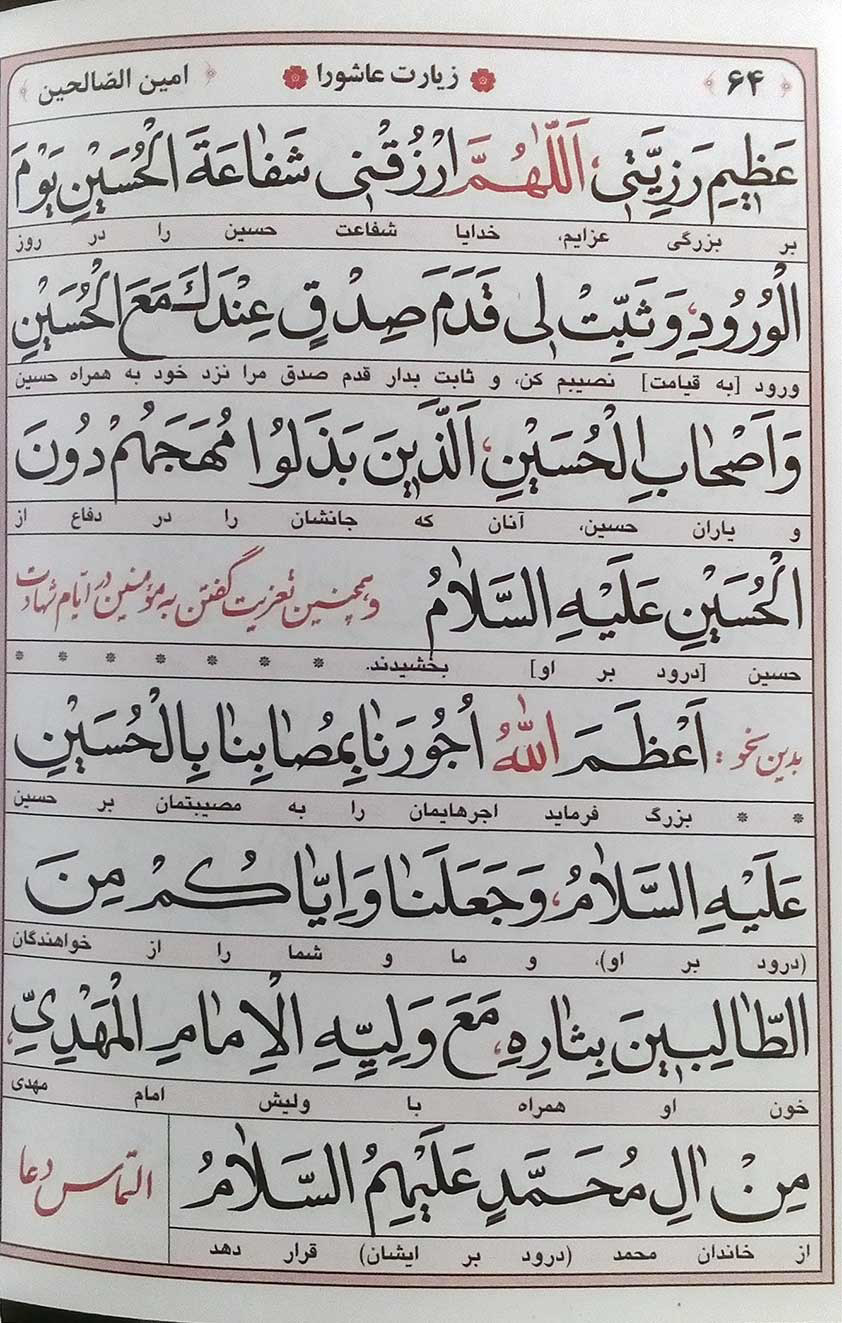 ۶۴ زیارت عاشورا امین الصّالحین
عَظیمِ رَزِیَّتی، اَللّٰهُمَّ ارْزُقْنی شَفاعَةَ الْحُسَیْنِ یَوْمَ
بر بزرگی عزایم، خدایا شفاعت حسین را در روز
الْوُرُودِ، وَ ثَبِّتْ لی قَدَمَ صِدْقٍ عِنْدَكَ مَعَ الْحُسَیْنِ
ورود [به قیامت] نصیبم کن، و ثابت بدار قدم صدق مرا نزد خود به همراه حسین
وَ اَصْحابِ الْحُسَیْنِ، اَلَّذینَ بَذَلُوا مُهَجَهُمْ دُونَ
و یاران حسین، آنان که جانشان را در دفاع از
الْحُسَیْنِ عَلَیْهِ السَّلامُ وهمچنین تعزیت گفتن به مؤمنین در ایّام شهادت
حسین [درود بر او] بخشیدند. * * * * * * *
بدین نحو: اَعْظَمَ اللّٰهُ اُجُورَنا بِمُصابِنا بِالْحُسَیْنِ
* * بزرگ فرماید اجرهایمان را به مصیبتمان بر حسین
عَلَیْهِ السَّلامُ، وَ جَعَلَنا وَ اِیّاكُمْ مِنَ
(درود بر او)، و ما و شما را از خواهندگان
الطّالِبینَ بِثارِهِ، مَعَ وَلِیِّهِ الْاِمامِ الْمَهْدِیِّ،
خون او همراه با ولیش امام مهدی
مِنْ الِ مُحَمَّدٍ عَلَیْهِمُ السَّلامُ التماس دعا
از خاندان محمد (درود بر ایشان) قرار دهد